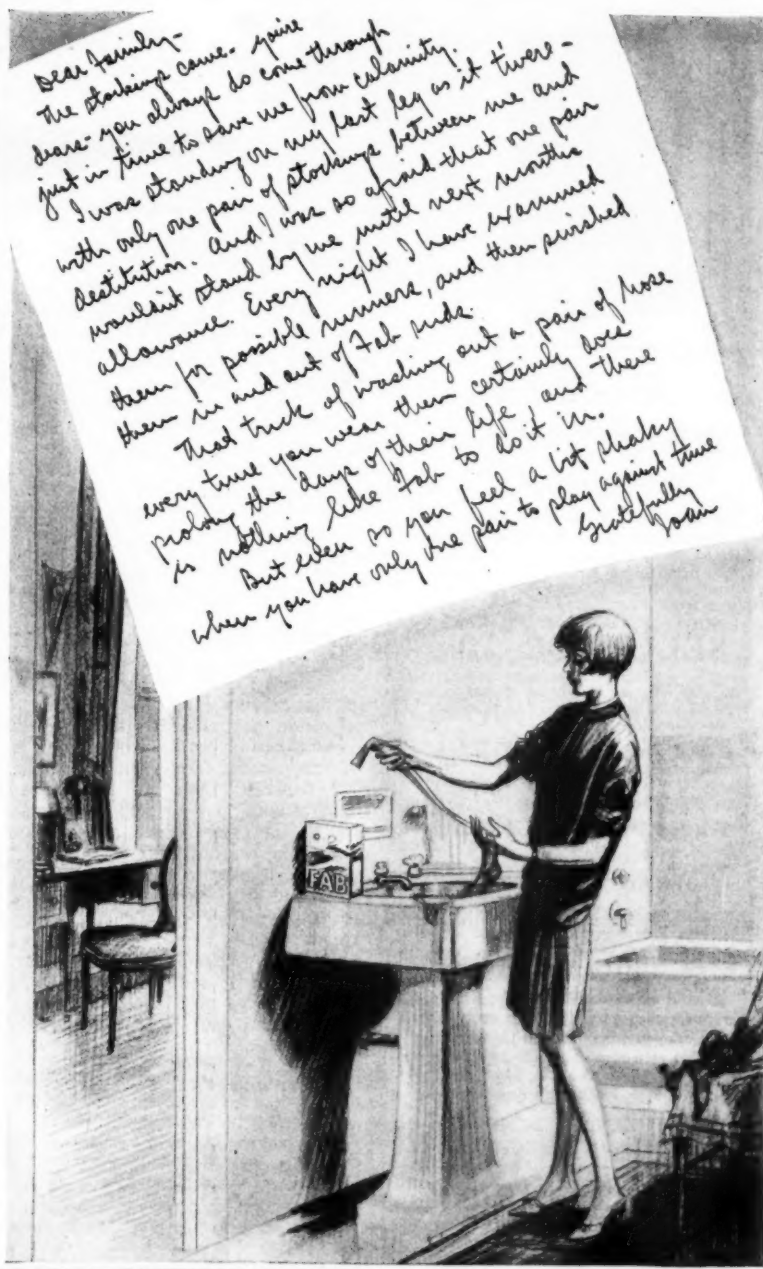 Dear Family-
The stockings came - you're
dears - you always do come through
just in time to save me from calamity.
I was standing on my last leg as it 'twere -
with only one pair of stockings between me and
destitution. And I was so afraid that one pair
wouldn't stand by me until next months
allowance. Every night I have examined
them for possible runners, and then swished
them in and out of Fab suds.
That trick of washing out a pair of hose
every time you wear them certainly does
prolong the days of their life, and there
is nothing like Fab to do it in.
But even so you feel a bit shaky
when you have only one pair to play against time
Gratefully
Joan
FAB